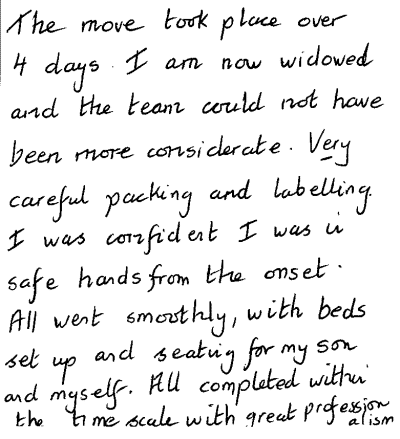 The move took place over
4 days. I am now widowed
and the team could not have
been more considerate. Very
careful packing and labelling
I was confident I was in
safe hands from the onset.
All went smoothly, with beds
set up and seating for my son
and myself. All completed within
the time scale with great profession
alism